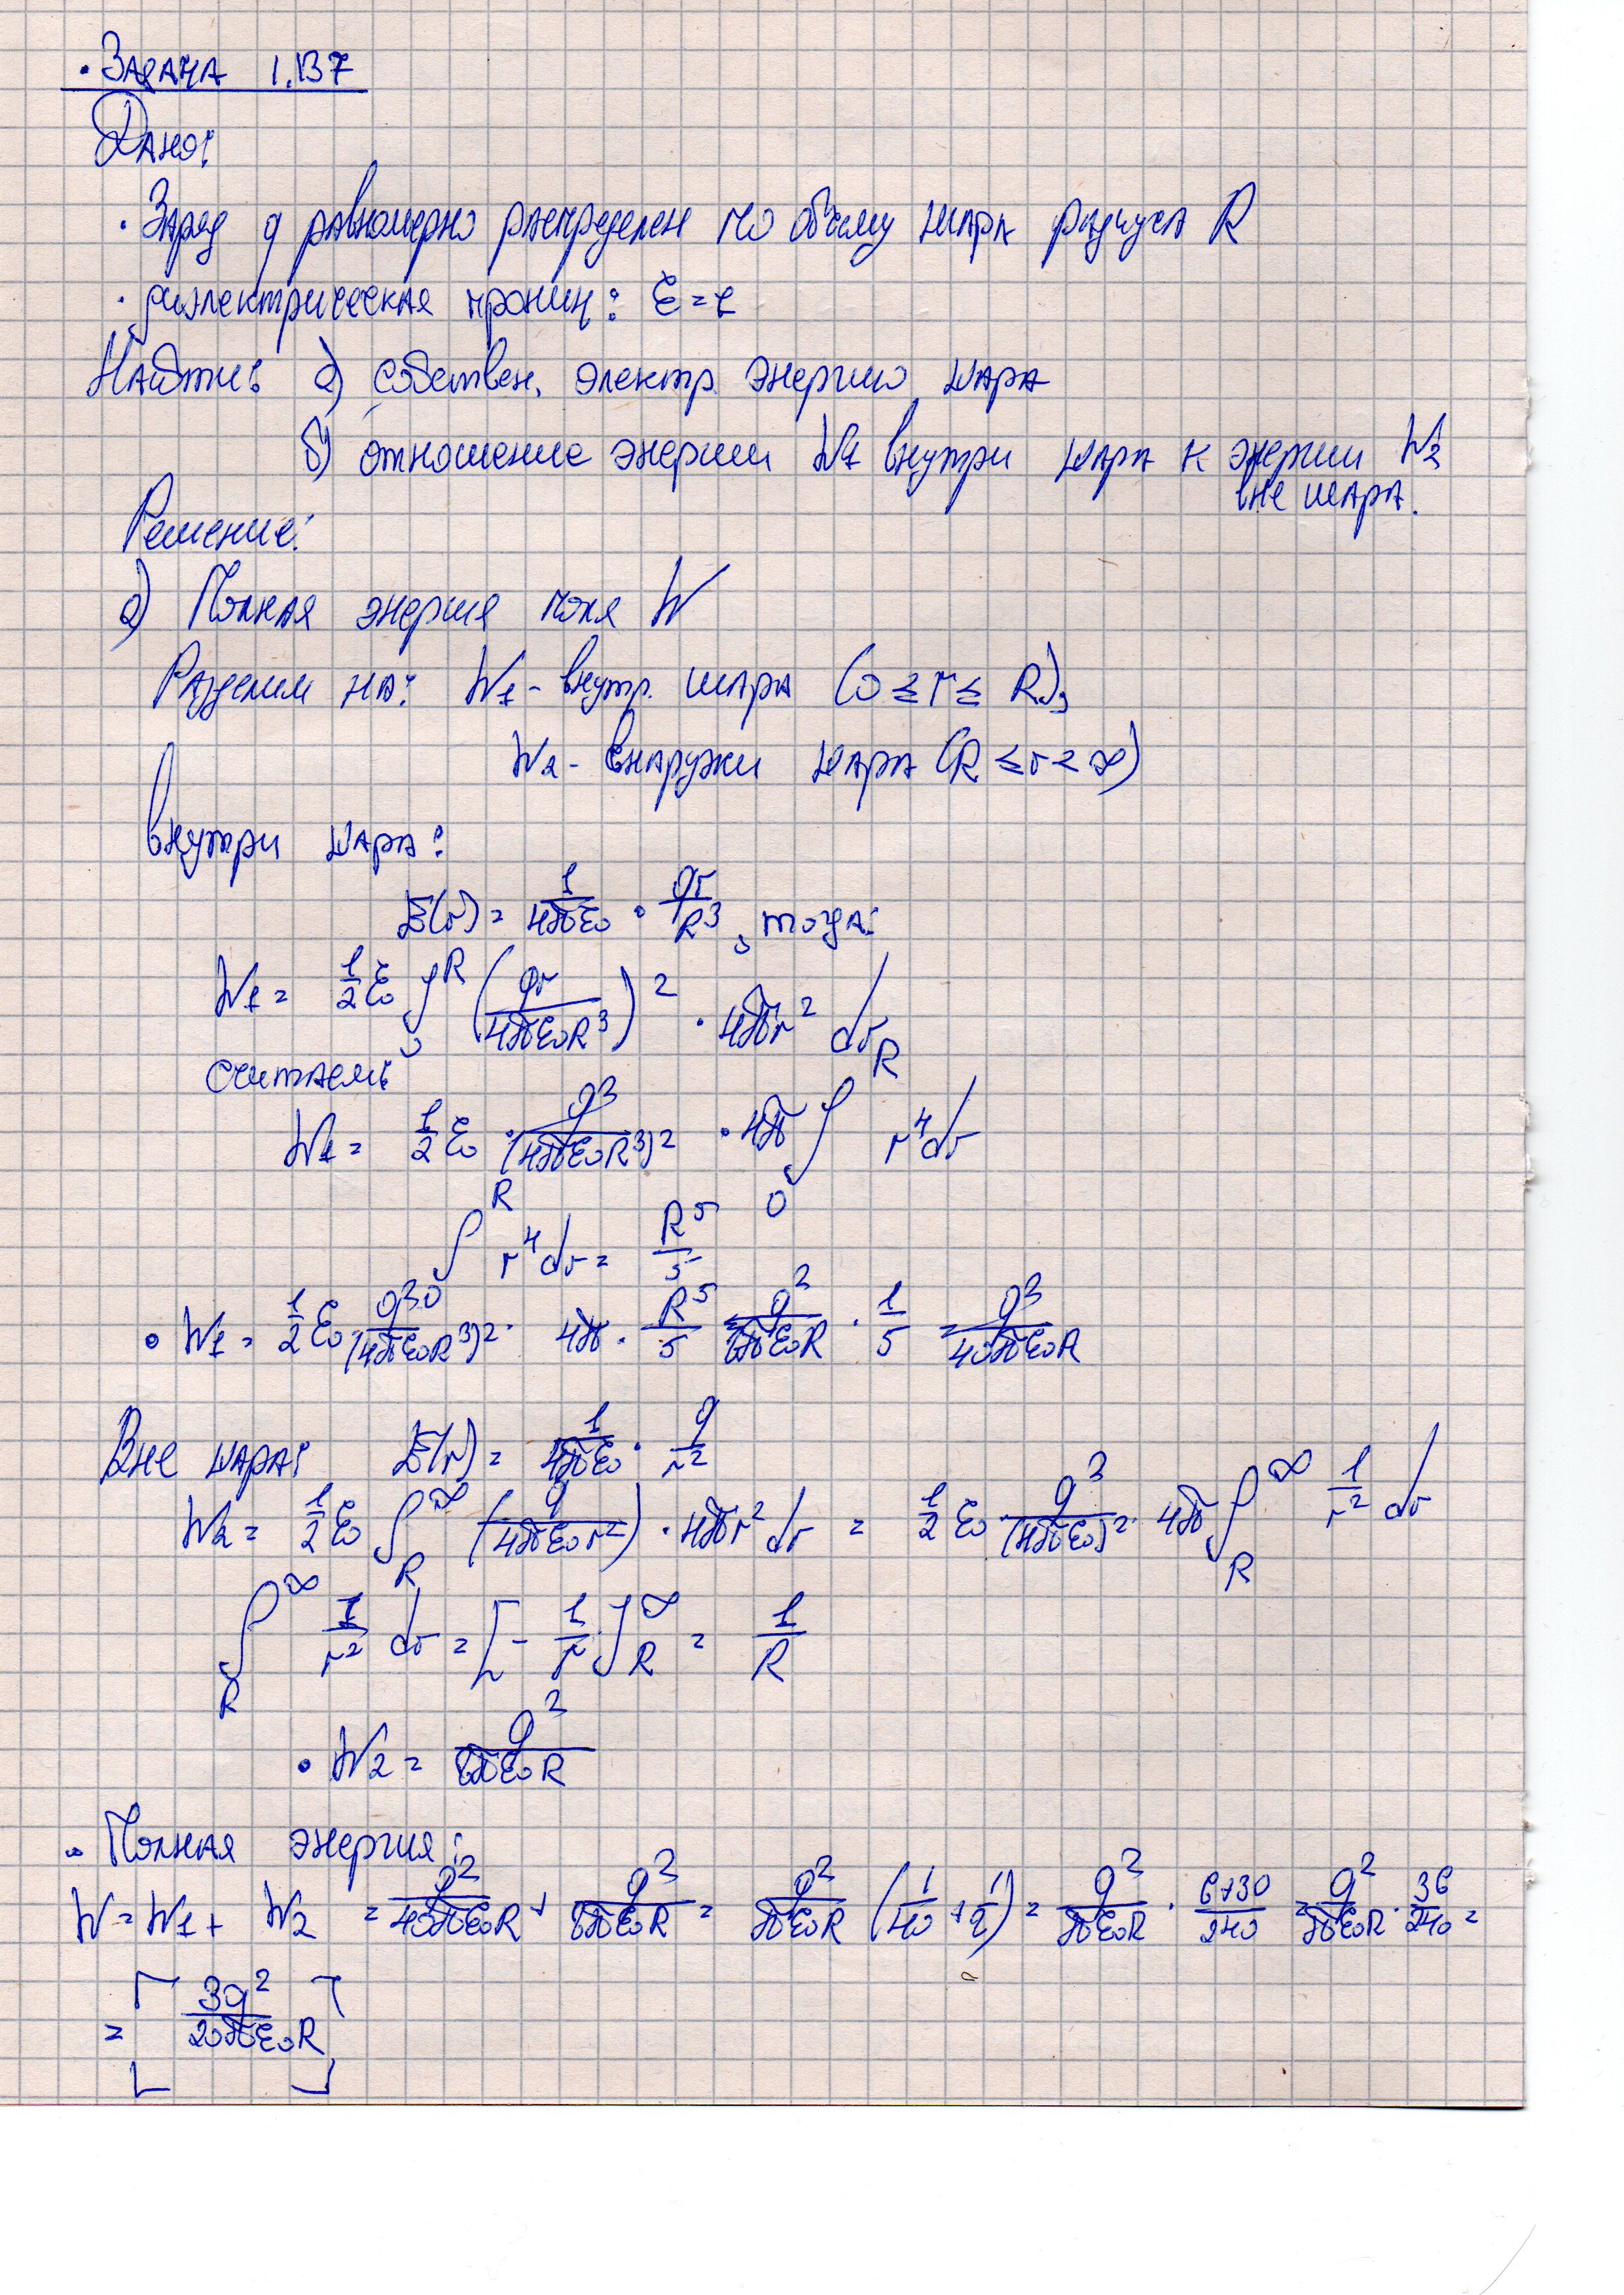 • Задача 1.137
Дано:
• Заряд q равномерно распределен по объему шара радиуса R
• диэлектрическая прониц: ε = 1
Найти: а) собствен. электр. энергию шара
б) отношение энергии W1 внутри шара к энергии W2
вне шара.
Решение:
а) Полная энергия поля W
Разделим на: W1 - внутр. шара (0 ≤ r ≤ R),
W2 - снаружи шара (R ≤ r < ∞)
внутри шара:
E(r) = 1/4πε0 • qr/R^3, тогда:
W1 = 1/2 ε0 ∫_0^R (qr/4πε0R^3)^2 • 4πr^2 dr
считаем:
W1 = 1/2 ε0 • q^2/(4πε0R^3)^2 • 4π ∫_0^R r^4 dr
∫_0^R r^4 dr = R^5/5
• W1 = 1/2 ε0 • q^2/(4πε0R^3)^2 • 4π • R^5/5 = q^2/8πε0R • 1/5 = q^2/40πε0R
Вне шара: E(r) = 1/4πε0 • q/r^2
W2 = 1/2 ε0 ∫_R^∞ (q/4πε0r^2) • 4πr^2 dr = 1/2 ε0 • q^2/(4πε0)^2 • 4π ∫_R^∞ 1/r^2 dr
∫_R^∞ 1/r^2 dr = [- 1/r]_R^∞ = 1/R
• W2 = q^2/8πε0R
• Полная энергия:
W = W1 + W2 = q^2/40πε0R + q^2/8πε0R = q^2/πε0R (1/40 + 1/8) = q^2/πε0R • 6+30/240 = q^2/πε0R • 36/240 =
= [3q^2/20πε0R]